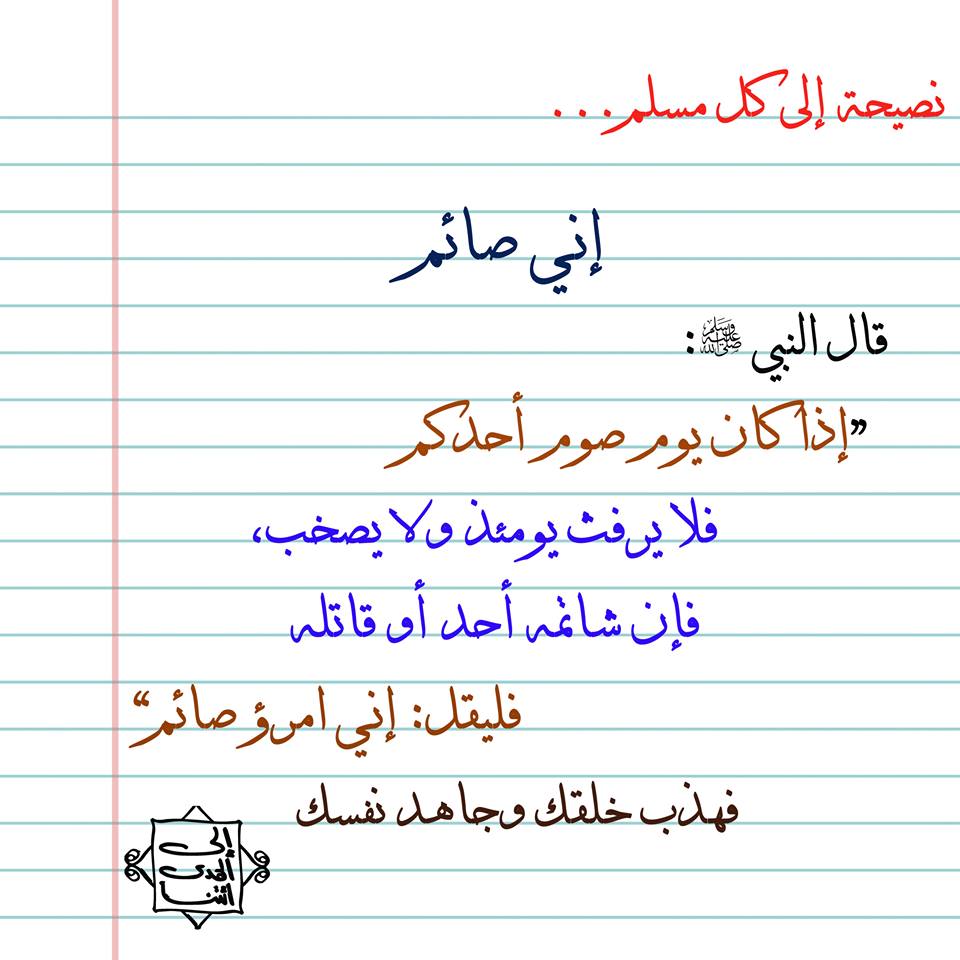 نصيحة إلى كل مسلم...
إني صائم
قال النبي ﷺ:
”إذا كان يوم صوم أحدكم
فلا يرفث يومئذ ولا يصخب،
فإن شاتمه أحد أو قاتله
فليقل: إني امرؤ صائم“
فهذب خلقك وجاهد نفسك
إلى
الهدى
ائتنا